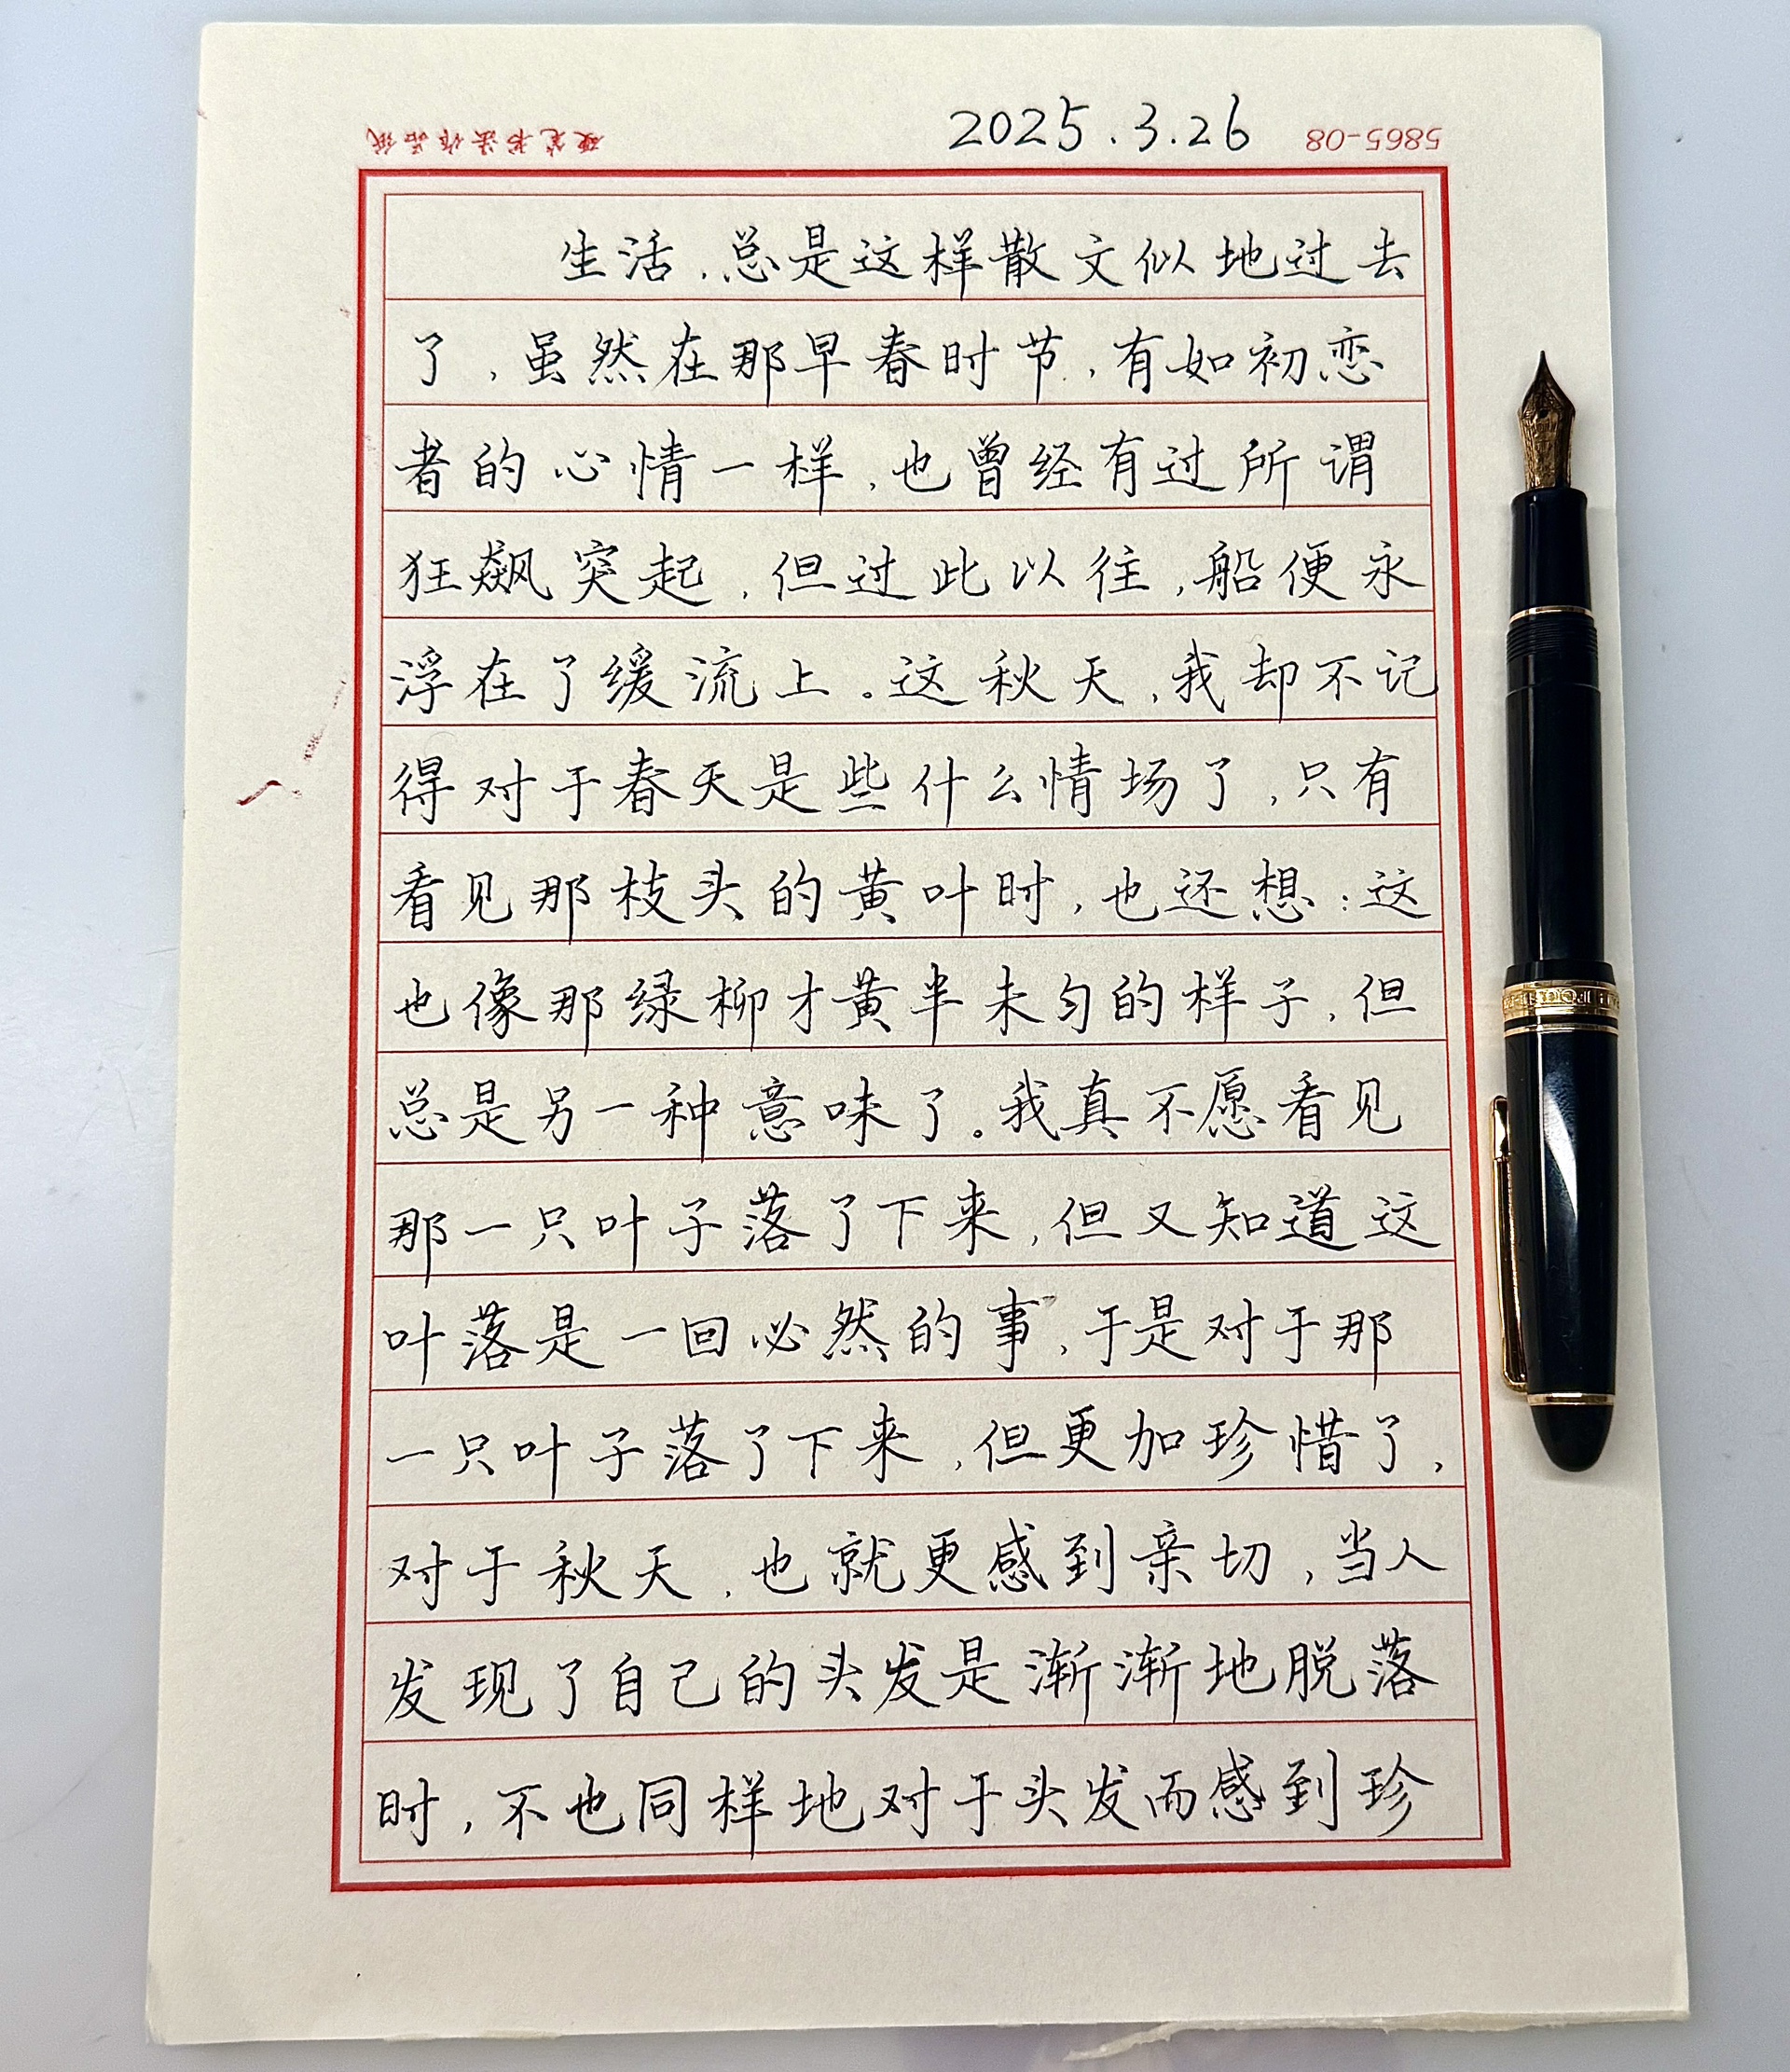 硬笔书法作品纸
2025.3.26
5865-08
生活,总是这样散文似地过去
了,虽然在那早春时节,有如初恋
者的心情一样,也曾经有过所谓
狂飙突起,但过此以往,船便永
浮在了缓流上。这秋天,我却不记
得对于春天是些什么情场了,只有
看见那枝头的黄叶时,也还想:这
也像那绿柳才黄半未匀的样子,但
总是另一种意味了。我真不愿看见
那一只叶子落了下来,但又知道这
叶落是一回必然的事,于是对于那
一只叶子落了下来,但更加珍惜了,
对于秋天,也就更感到亲切,当人
发现了自己的头发是渐渐地脱落
时,不也同样地对于头发而感到珍